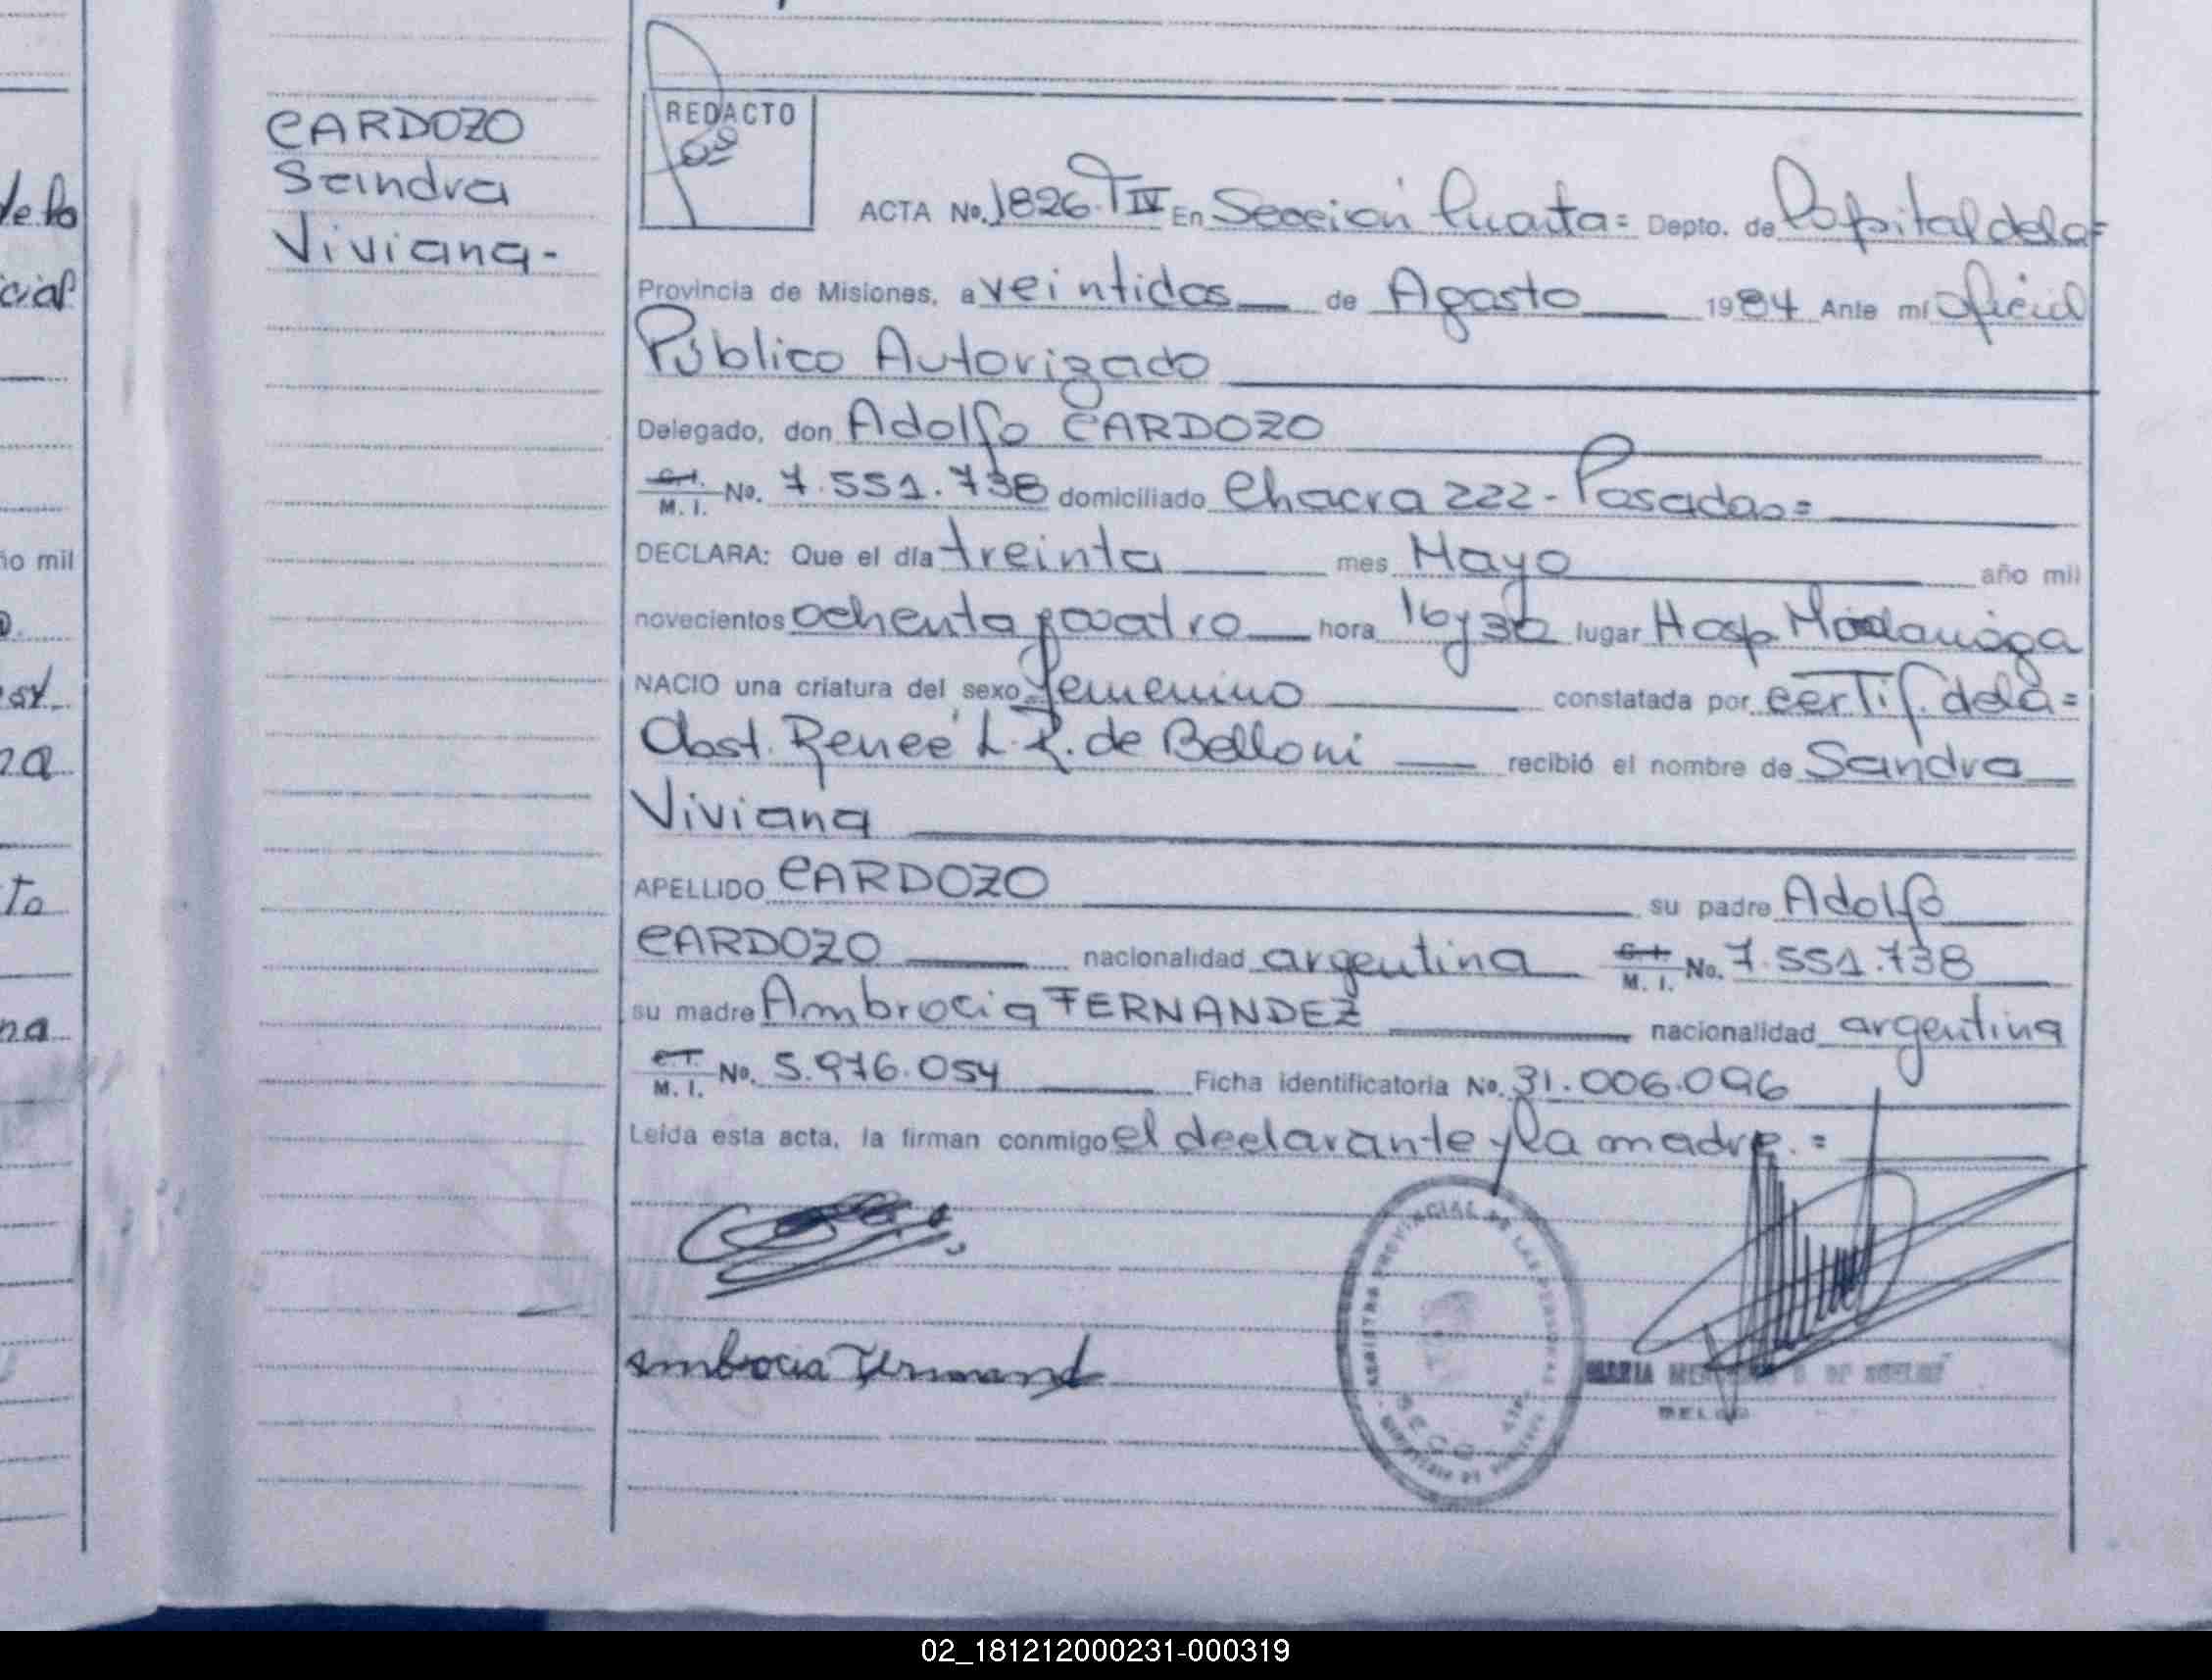 CARDOZO
Sandra
Viviana-
REDACTO
ACTA No. 1826. T IV En Sección Cuarta= Depto. de Capital de la=
Provincia de Misiones, a veintidos de Agosto 1984 Ante mí Oficial
Público Autorizado
Delegado, don Adolfo CARDOZO
C.I. M. I. No. 7.551.738 domiciliado Chacra 222- Posadas=
DECLARA: Que el día treinta mes Mayo año mil
novecientos ochenta y cuatro hora 16 y 30 lugar Hosp. Madariaga
NACIO una criatura del sexo femenino constatada por certif. de la=
Obst. Reneé L. R. de Belloni recibió el nombre de Sandra
Viviana
APELLIDO CARDOZO su padre Adolfo
CARDOZO nacionalidad argentina C.I. M. I. No. 7.551.738
su madre Ambrocia FERNANDEZ nacionalidad argentina
C.I. M. I. No. 5.976.054 Ficha identificatoria No. 31.006.096
Leída esta acta, la firman conmigo el declarante y la madre.=
REGISTRO PROVINCIAL DE LAS PERSONAS
ambrocia Fernand
MARIA
de la
cial
ño mil
na
to
na
02_181212000231-000319